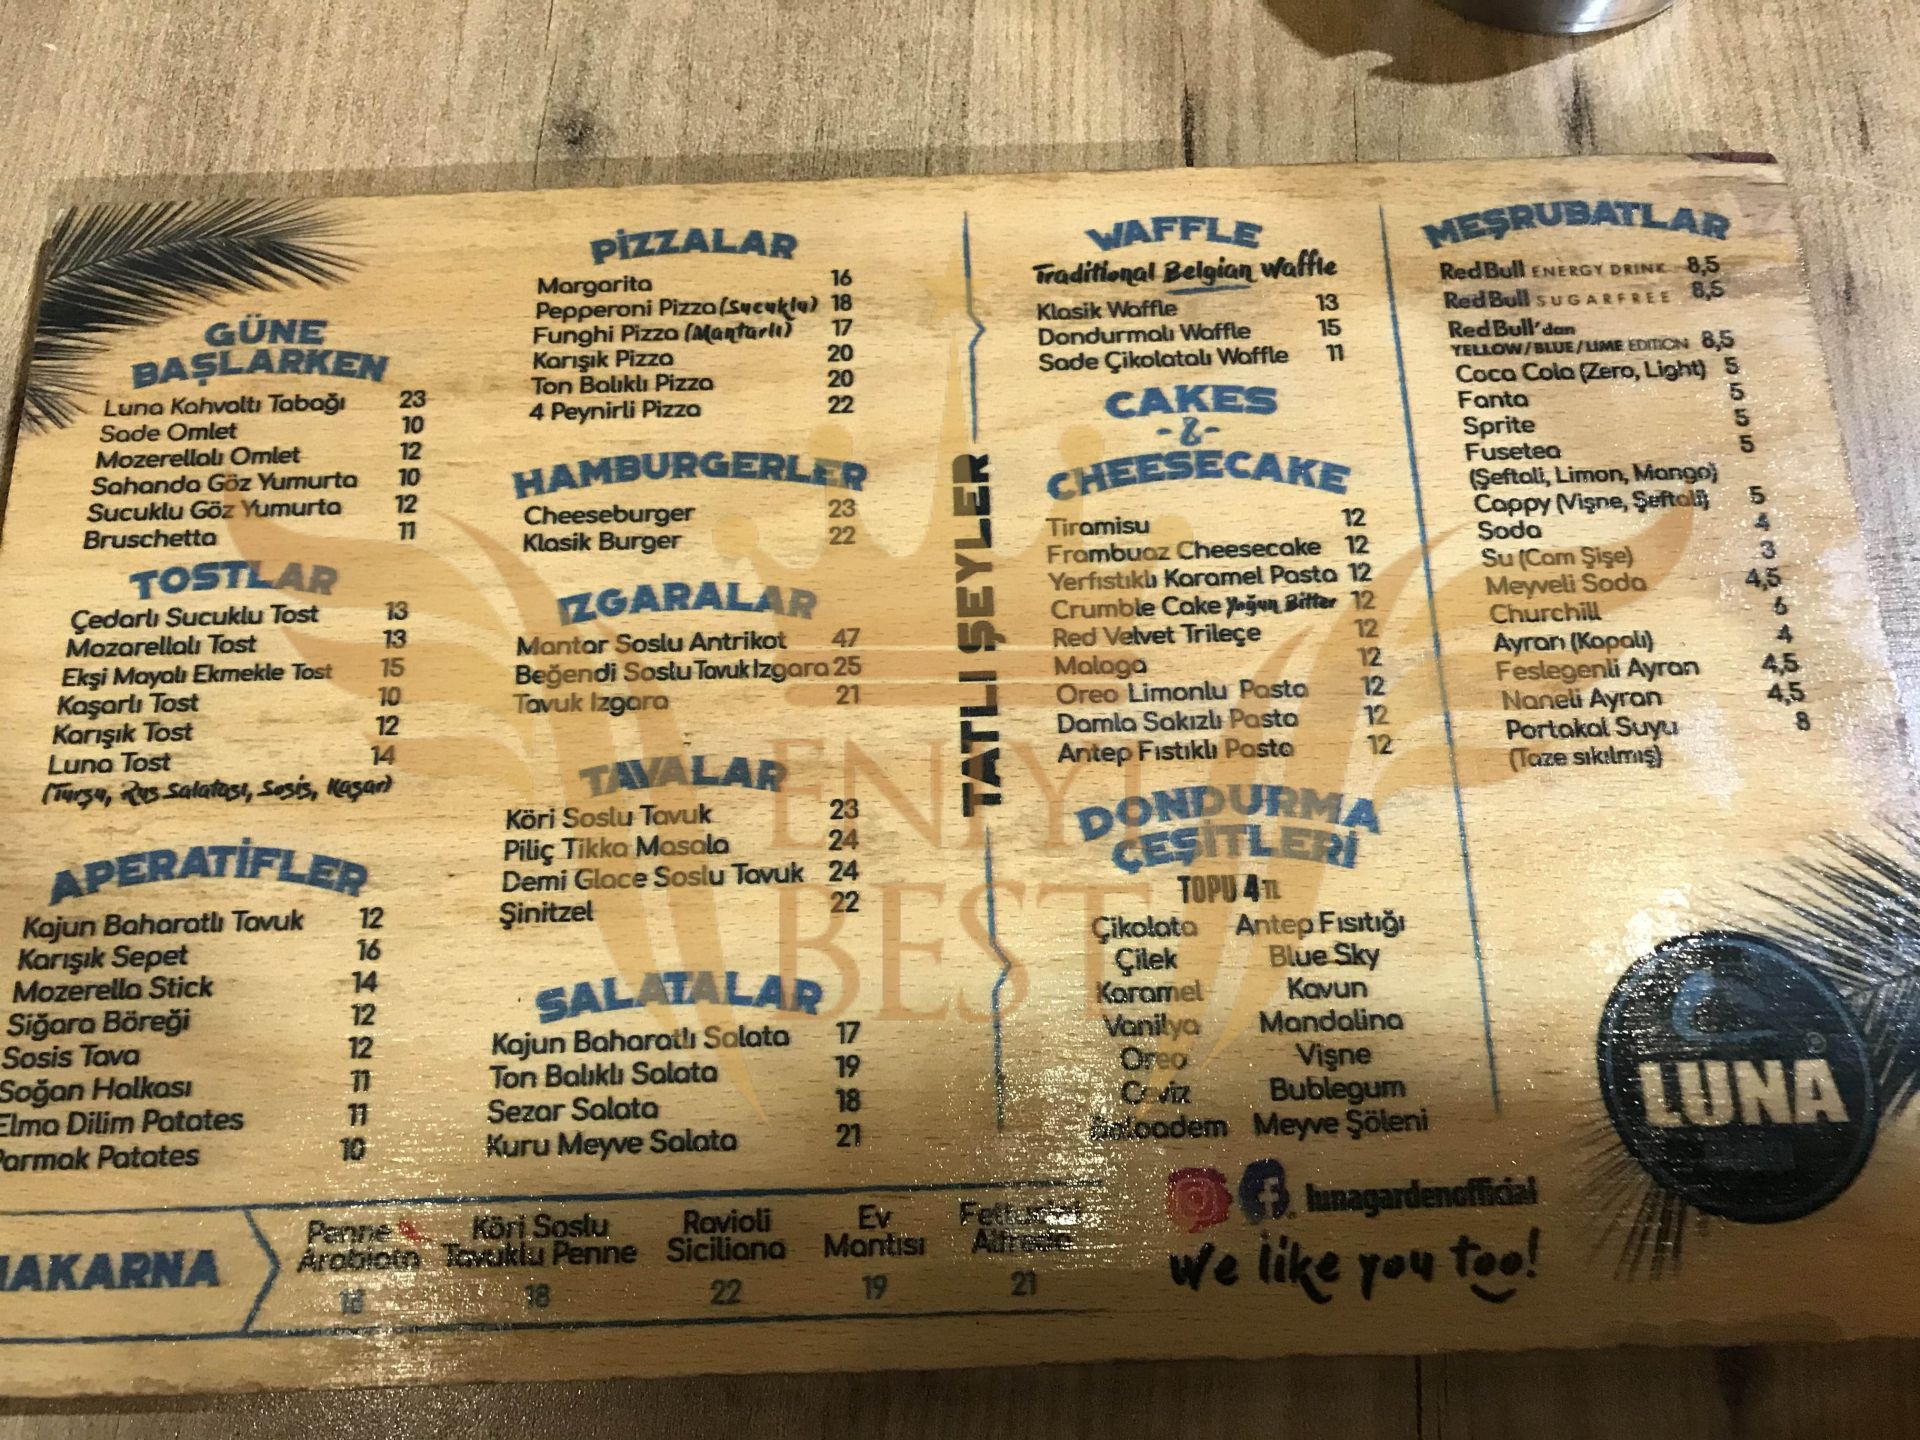 GÜNE
BAŞLARKEN
Luna Kahvaltı Tabağı 23
Sade Omlet 10
Mozerellalı Omlet 12
Sahanda Göz Yumurta 10
Sucuklu Göz Yumurta 12
Bruschetta 11
TOSTLAR
Çedarlı Sucuklu Tost 13
Mozarellalı Tost 13
Ekşi Mayalı Ekmekle Tost 15
Kaşarlı Tost 10
Karışık Tost 12
Luna Tost 14
(Turşu, Rus Salatası, Sosis, Kaşar)
APERATİFLER
Kajun Baharatlı Tavuk 12
Karışık Sepet 16
Mozerella Stick 14
Siğara Böreği 12
Sosis Tava 12
Soğan Halkası 11
Elma Dilim Patates 11
Parmak Patates 10
PİZZALAR
Margarita 16
Pepperoni Pizza (Sucuklu) 18
Funghi Pizza (Mantarlı) 17
Karışık Pizza 20
Ton Balıklı Pizza 20
4 Peynirli Pizza 22
HAMBURGERLER
Cheeseburger 23
Klasik Burger 22
IZGARALAR
Mantar Soslu Antrikot 47
Beğendi Soslu Tavuk Izgara 25
Tavuk Izgara 21
TAVALAR
Köri Soslu Tavuk 23
Piliç Tikka Masala 24
Demi Glace Soslu Tavuk 24
Şinitzel 22
SALATALAR
Kajun Baharatlı Salata 17
Ton Balıklı Salata 19
Sezar Salata 18
Kuru Meyve Salata 21
TATLI ŞEYLER
WAFFLE
Traditional Belgian Waffle
Klasik Waffle 13
Dondurmalı Waffle 15
Sade Çikolatalı Waffle 11
CAKES
-&-
CHEESECAKE
Tiramisu 12
Frambuaz Cheesecake 12
Yerfıstıklı Karamel Pasta 12
Crumble Cake Yoğun Bitter 12
Red Velvet Trileçe 12
Malaga 12
Oreo Limonlu Pasta 12
Damla Sakızlı Pasta 12
Antep Fıstıklı Pasta 12
DONDURMA
ÇEŞİTLERİ
TOPU 4 TL
Çikolata Antep Fısıtığı
Çilek Blue Sky
Karamel Kavun
Vanilya Mandalina
Oreo Vişne
Ceviz Bublegum
Balbadem Meyve Şöleni
MEŞRUBATLAR
Red Bull ENERGY DRINK 8,5
Red Bull SUGARFREE 8,5
Red Bull'dan
YELLOW/BLUE/LIME EDITION 8,5
Coca Cola (Zero, Light) 5
Fanta 5
Sprite 5
Fusetea 5
(Şeftali, Limon, Mango)
Cappy (Vişne, Şeftali) 5
Soda 4
Su (Cam Şişe) 3
Meyveli Soda 4,5
Churchill 6
Ayran (Kapalı) 4
Feslegenli Ayran 4,5
Naneli Ayran 4,5
Portakal Suyu 8
(Taze sıkılmış)
LUNA
lunagardenofficial
We like you too!
MAKARNA
Penne
Arabiata
Köri Soslu
Tavuklu Penne
18
Ravioli
Siciliana
22
Ev
Mantısı
19
Alfredo
21
EN İYİ
BEST